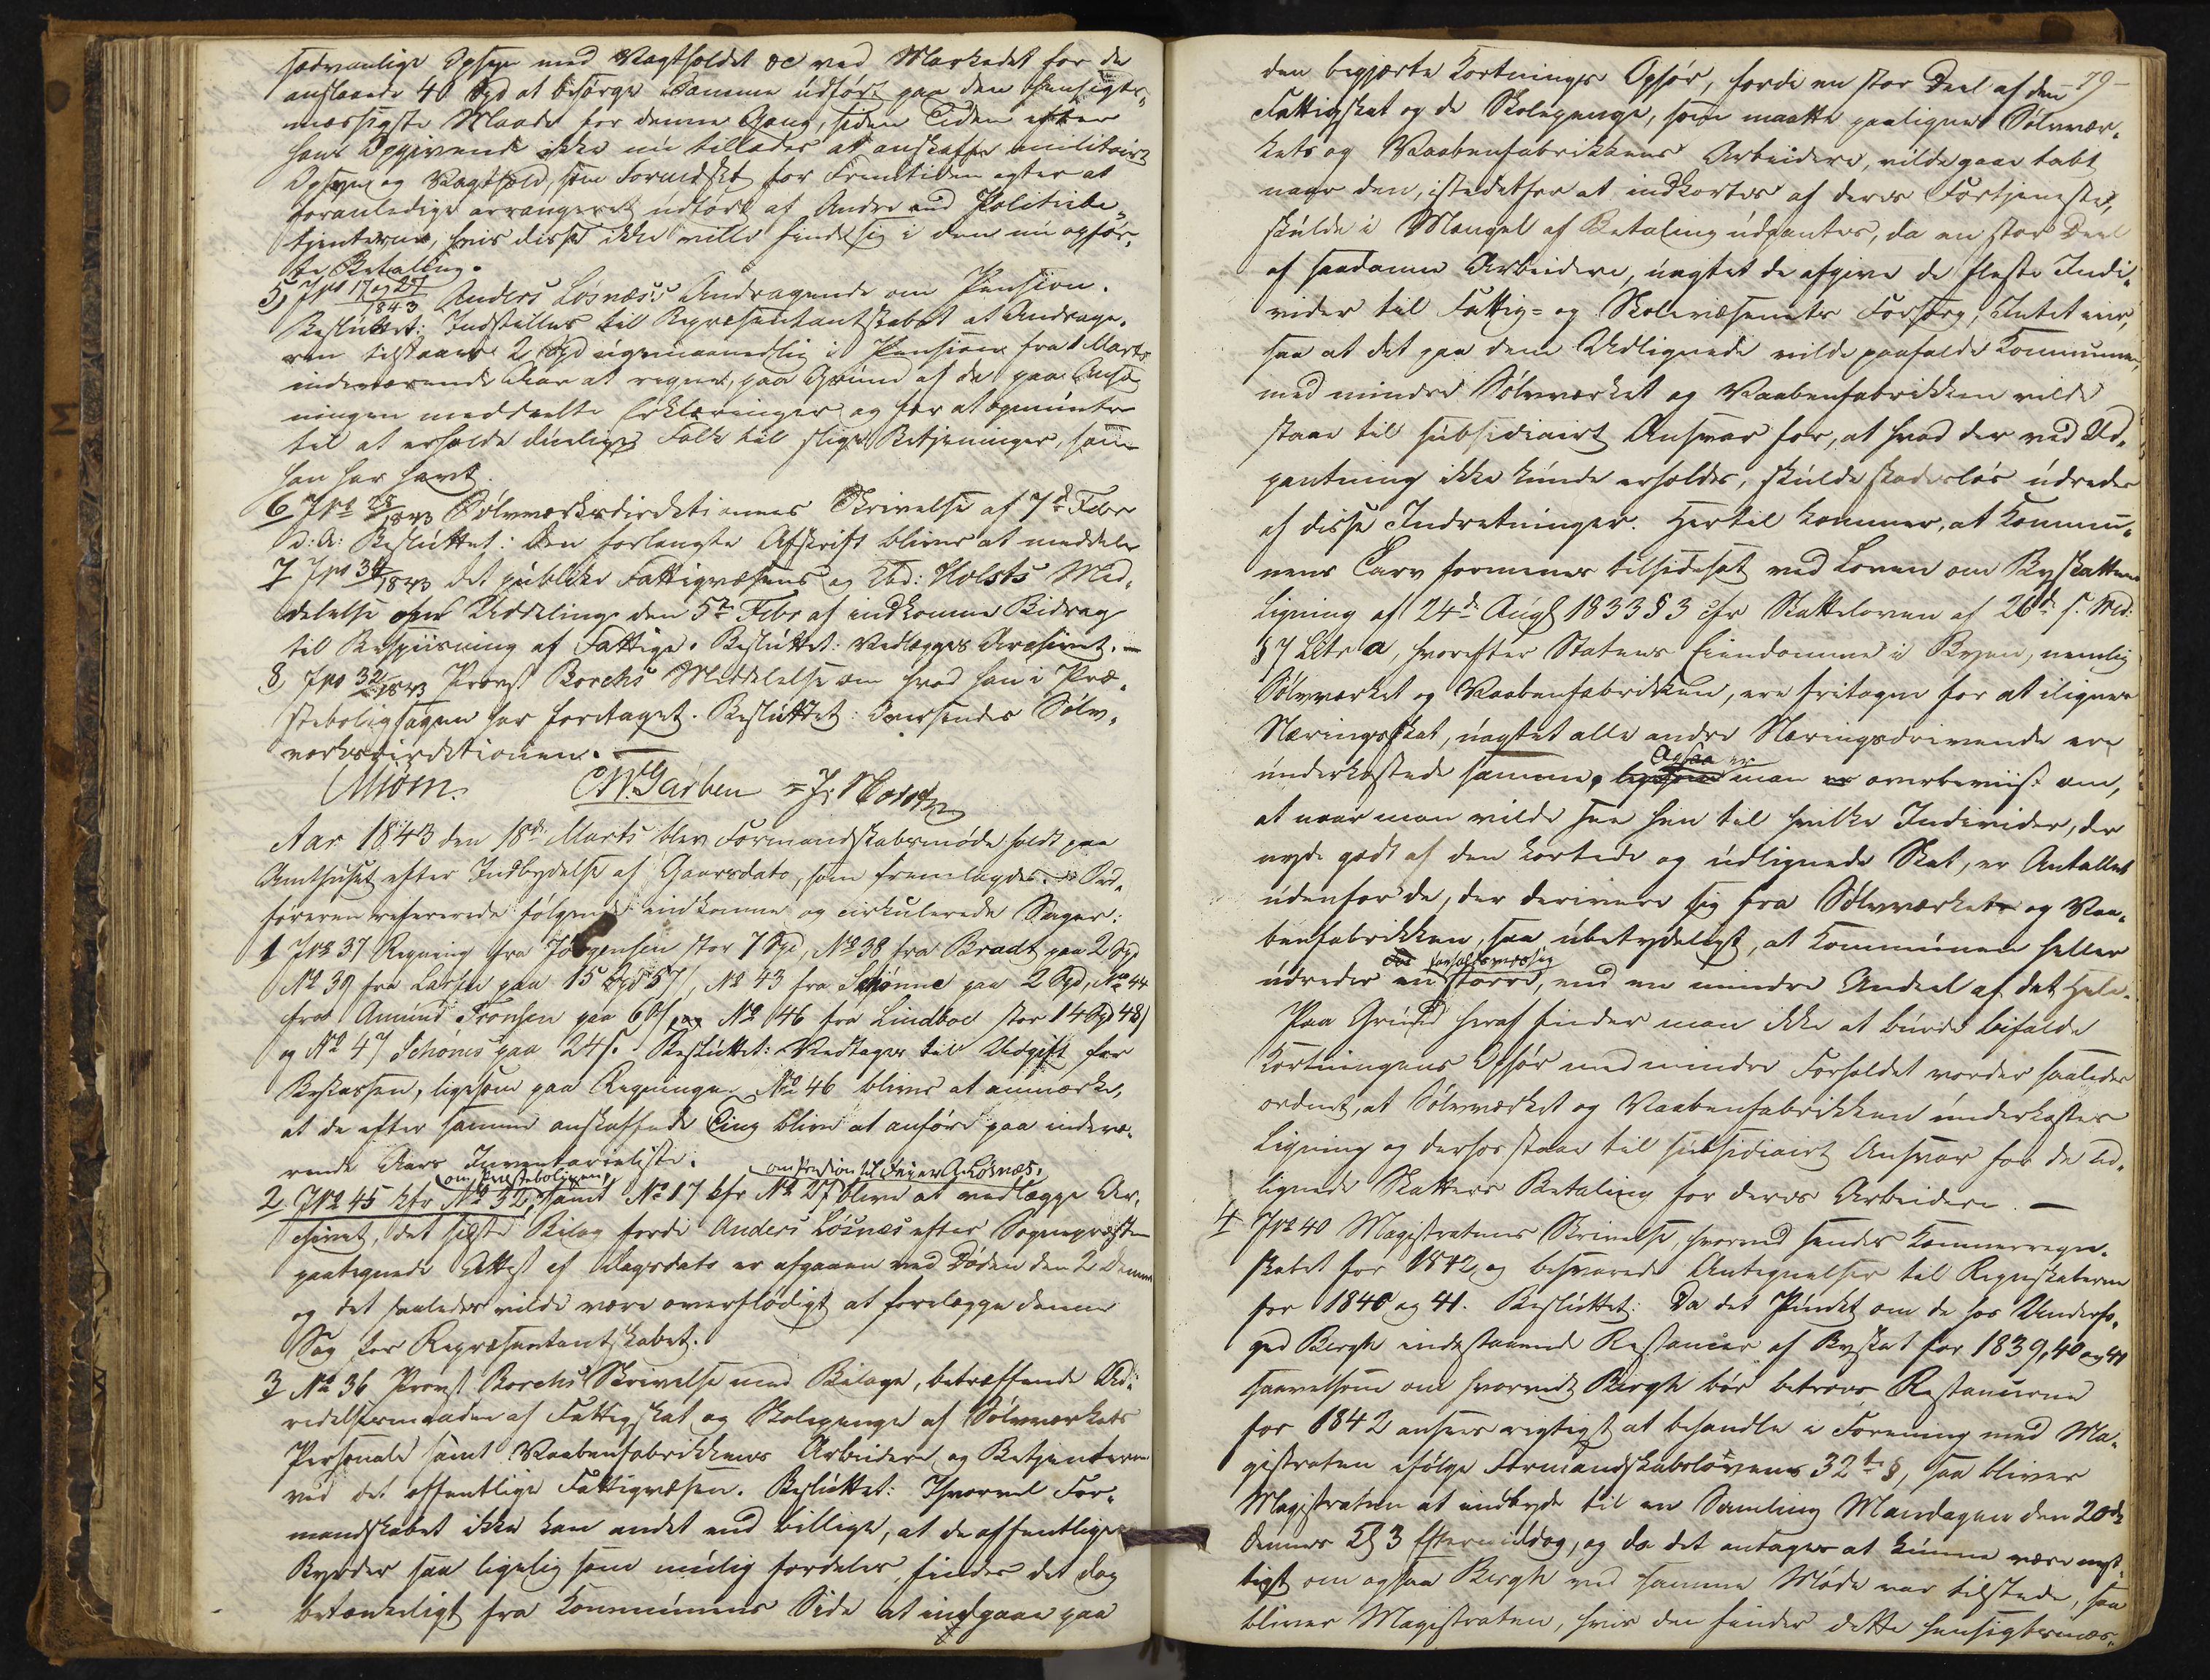 sædvanlige Opsyn med Vagtholdet &c ved Markedet for de
anslaaede 40 Spd at besørge samme udført paa den hensigts-
mæssigste Maade for denne Gang, siden Tiden efter
hans Opgivende ikke nu tillader at anskaffe militairt
Opsyn og Vagthold, som Formdskbt for Fremtiden agter at
foranledige arrangeret udført af Andre end Politiebe-
tjenterne, hvis disse ikke ville finde sig i den nu opfør-
te Betaling.
5, Jno 17 og 27/1843 Anders Løsnæs's Andragende om Pension.
Besluttet: Indstilles til Repræsentantskabet at Andrage-
ren tilstaaes 2 Spd ugemaanedlig i Pension fra 1 Marts
indeværende Aar at regne, paa Grund af de paa Ansøg-
ningen meddeelte Erklæringer og for at opmuntre
til at erholde duelige Folk til slige Betjeninger, som
han har havt.
6 Jno 28/1843 Sølvværksdirektionens Skrivelse af 7d Febr
d: A: Besluttet: Den forlangte Afskrift bliver at meddele
7 Jno 34/1843 det publike Fattigvæsens og Ebd: Holsts Med-
delelse over Uddeling den 5te Febr af indkomne Bidrag
til Bespiisning af Fattige. Besluttet: Vedlægges Archivet. —
8, Jno 32/1843 Provst Borchs Meddelelse om hvad han i Præ-
steboligsagen har foretaget. Besluttet: Oversendes Sølv-
værksdirektionen. —
CMGarben = J: Moss
Aar 1843 den 18de Marts blev Formandskabsmøde holdt paa
Amthuset efter Indbydelse af Gaarsdato, som fremlagdes. Ord-
føreren refererede følgende indkomne og cirkulerede Sager:
1 Jno 37 Regning fra Jørgensen stor 7 Spd, No 38 fra Bradt paa 2 Spd
No 39 fra Larsen paa 15 Spd 57 s, No 43 fra Schiønne paa 2 Spd, No 44
fra Amund Fronsen paa 60 s No 46 fra Lindboe stor 14 Spd 48 s
og No 47 Schiønes paa 24 s. Besluttet: Vedtages til Udgift for
Bykassen, ligesom paa Regningen No 46 bliver at anmærke,
at de efter samme anskaffede Ting blive at anføre paa indevæ-
rende Aars Inventarieliste.
om Præsteboligen, om Pension til Feier A. Løsnæs,
2 Jno 45 kfr No 32, samt No 17 kfr No 27 blive at vedlægge Ar-
chivet, det sidste Bilag fordi Anders Løsnæs efter Sognepræsten
paategnede Attest af Dagsdato er afgaaen ved Døden den 2 denne
og det saaledes vilde være overflødigt at forelægge denne
Sag for Repræsentantskabet.
3 No 36 Provst Borchs Skrivelse med Bilage, betræffende Ud-
redelsesmaaden af Fattigskat og Skolepenge af Sølvværkets
Personale samt Vaabenfabrikkens Arbeidere og Betjenterne
ved det offentlige Fattigvæsen. Besluttet: Ihvorvel For-
mandskabet ikke kan andet end billige, at de offentlige
Byrder saa ligelig som mulig fordeles, findes det dog
betænkeligt fra Kommunens Side at indgaae paa
79
den begjærte Kortnings Ophør, fordi en stor Deel af den
Fattigskat og de Skolepenge, som maatte paalignes Sølvvær-
kets og Vaabenfabrikkens Arbeidere, vilde gaae tabt
naar den, istedetfor at indkortes af deres Fortjeneste,
skulde i Mangel af Betaling udpantes, da en stor Deel
af saadanne Arbeidere, uagtet de afgive de fleste Indi-
vider til Fattig- og Skolevæsenets Forsorg, Intet eie,
saa at det paa dem Udlignede vilde paafalde Kommunen,
med mindre Sølvværket og Vaabenfabrikken vilde
staae til subsidiairt Ansvar for, at hvad der ved Ud-
pantning ikke kunde erholdes, skulde skadesløs udredes
af disse Indretninger. Hertil kommer, at Kommu-
nens Tarv formenes tilsidesat ved Loven om Byskattens
Ligning af 24de Augs 1833 § 3 cfr Skatteloven af 26de s. Md:
§ 7 Litr a, hvorefter Statens Eiendomme i Byen, nemlig
Sølvværket og Vaabenfabrikken, ere fritagne for at ilignes
Næringsskat, uagtet alle andre Næringsdrivende ere
Ogsaa er
underkastede samme, ligesom man er overbeviist om,
at naar man vilde see hen til hvilke Individer, der
nyde godt af den kortede og udlignede Skat, er Antallet
udenfor de, der derivere sig fra Sølvværket og Vaa-
benfabrikken, saa ubetydeligt, at Kommunen heller
forholdsmæssig
udreder en større, end en mindre Andeel af det Hele.
Paa Grund heraf finder man ikke at burde bifalde
Kortningens Ophør med mindre Forholdet vorder saaledes
ordnet, at Sølvværket og Vaabenfabrikken underkastes
Ligning og derhos staae til subsidiairt Ansvar for de ud-
lignede Skatters Betaling for deres Arbeidere. —
4 Jno 40 Magistratens Skrivelse, hvorved sendes Kæmnerregn-
skabet for 1842 og besvarede Antegnelser til Regnskaberne
for 1840 og 41. Besluttet: Da det Punkt om de hos Underfo-
ged Bergh indestaaende Restancer af Byskat for 1839, 40 og 41
saavelsom om hvorvidt Bergh bør betroes Restancerne
for 1842 ansees rigtigst at behandle i Forening med Ma-
gistraten ifølge Formandskabslovens 32te §, saa bliver
Magistraten at indbyde til en Samling Mandagen den 20de
dennes Kl 3 Eftermiddag, og da det antages at kunne være nyt-
tigt om ogsaa Bergh ved samme Møde var tilstede, saa
bliver Magistraten, hvis den finder dette hensigtsmæs-